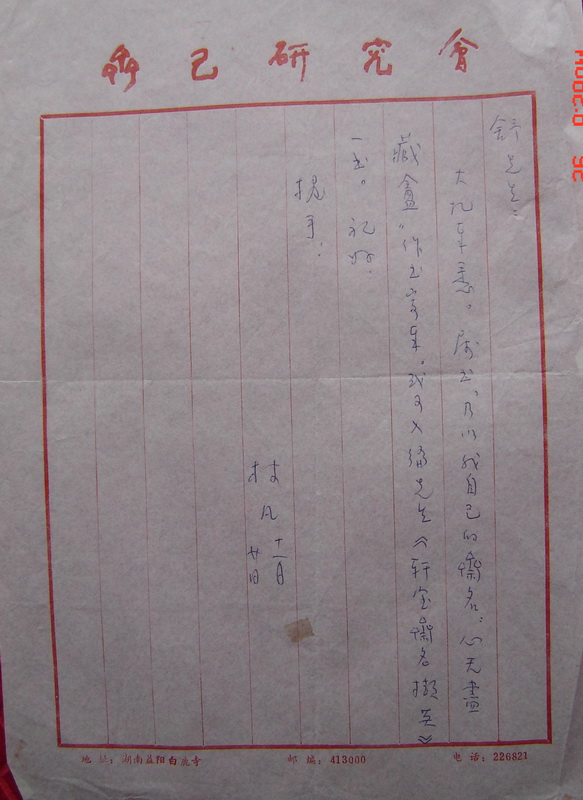 齊己研究會
舒先生：
大札奉悉。属书，乃以我自己的齋名“心无盡
藏盦”作书寄奉。或可入编先生《轩室齋名撷英》
一书。祝好。
握手！
林凡
十一月
廿日
地 址：湖南益阳白鹿寺 邮 编：413000 电 话：226821